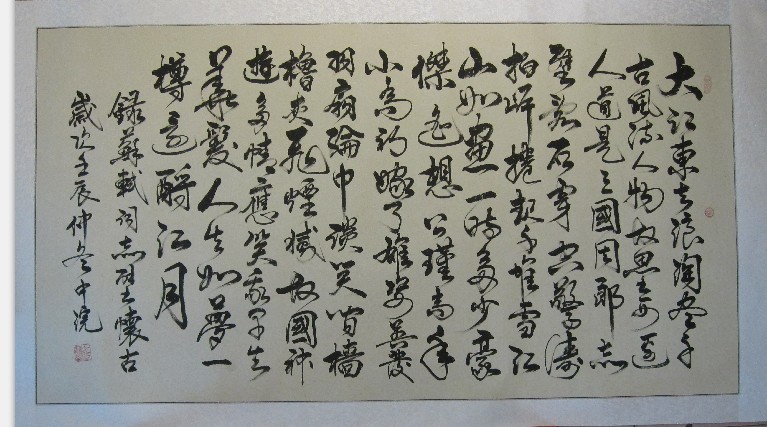 大江東去浪淘盡千
古風流人物故壘西邊
人道是三國周郎赤
壁亂石穿空驚濤
拍岸捲起千堆雪江
山如畫一時多少豪
傑遙想公瑾當年
小喬初嫁了雄姿英發
羽扇綸巾談笑間檣
櫓灰飛煙滅故國神
遊多情應笑我早生
華髮人生如夢一
樽還酹江月
錄蘇軾詞赤壁懷古
歲次壬辰仲冬中浣